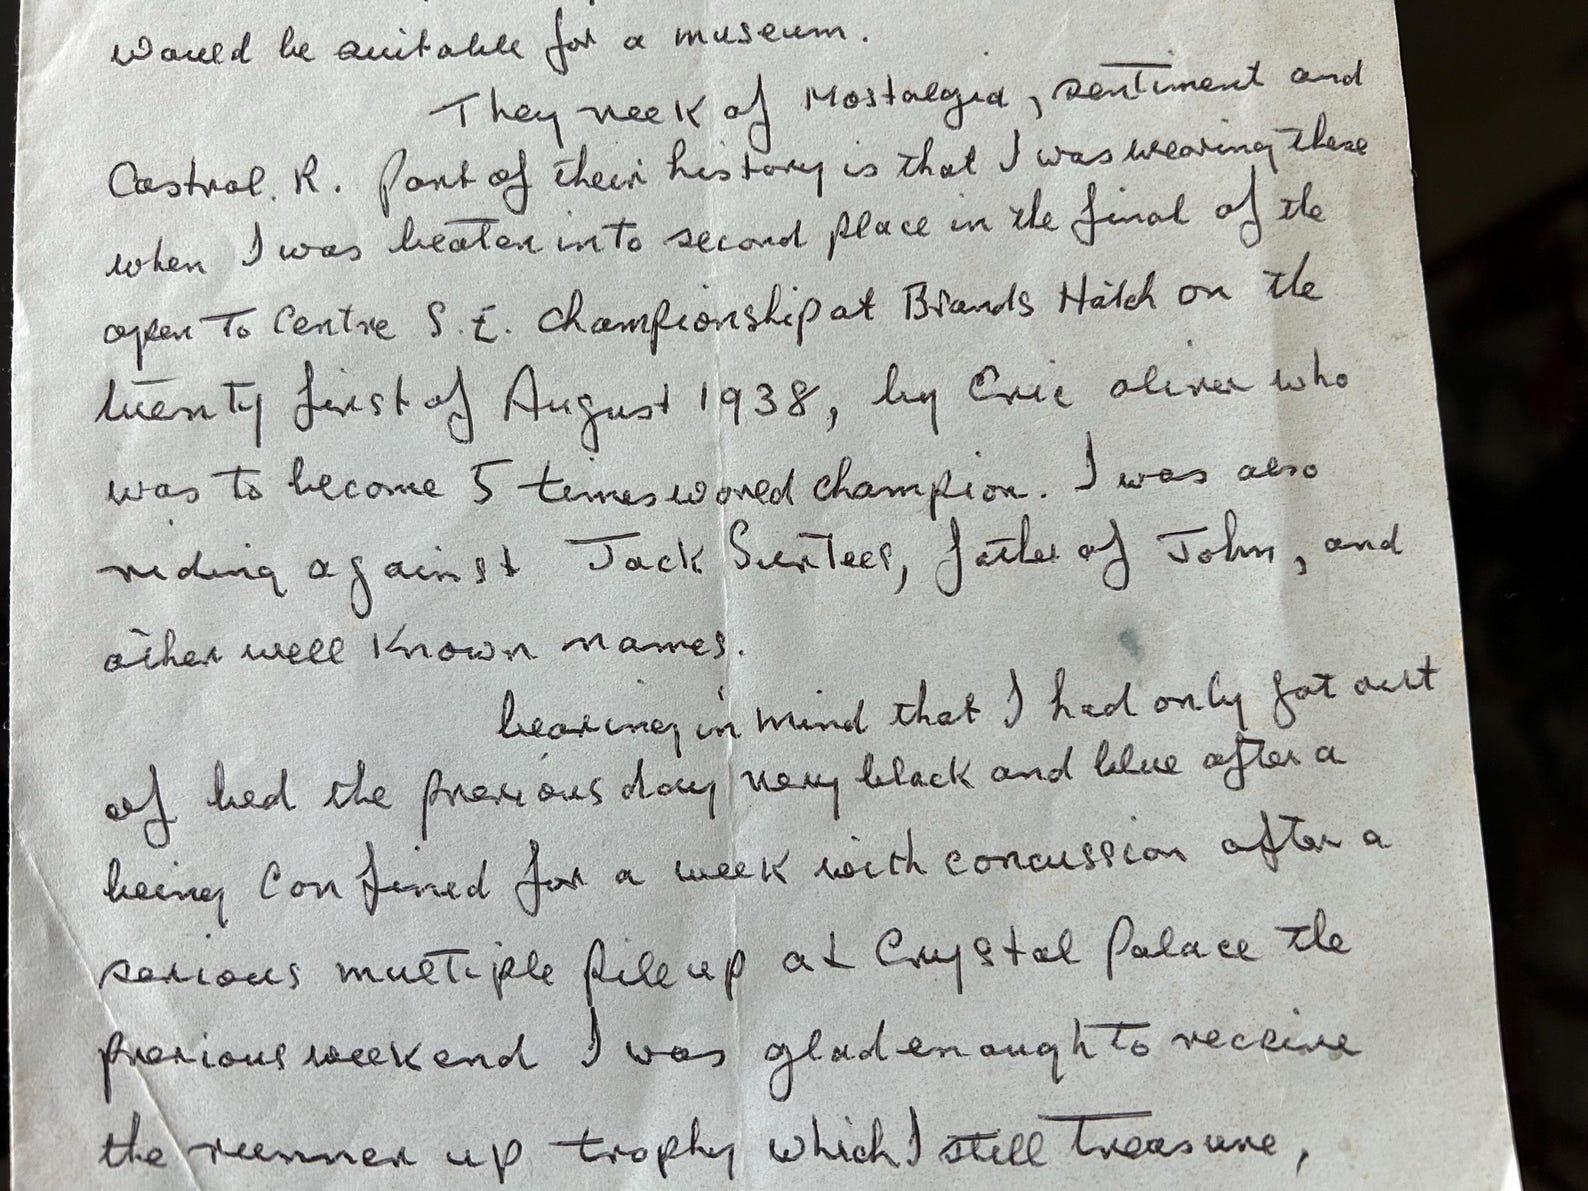 would be suitable for a museum.
They reek of Nostalgia, sentiment and
Castrol. R. Part of their history is that I was wearing these
when I was beaten into second place in the final of the
open to Centre S.E. Championship at Brands Hatch on the
twenty first of August 1938, by Eric oliver who
was to become 5 times world champion. I was also
riding against Jack Surtees, father of John, and
other well known names.
bearing in mind that I had only got out
of bed the previous day very black and blue after a
being confined for a week with concussion after a
serious multiple pile up at Crystal Palace the
previous weekend I was glad enough to receive
the runner up trophy which I still treasure,